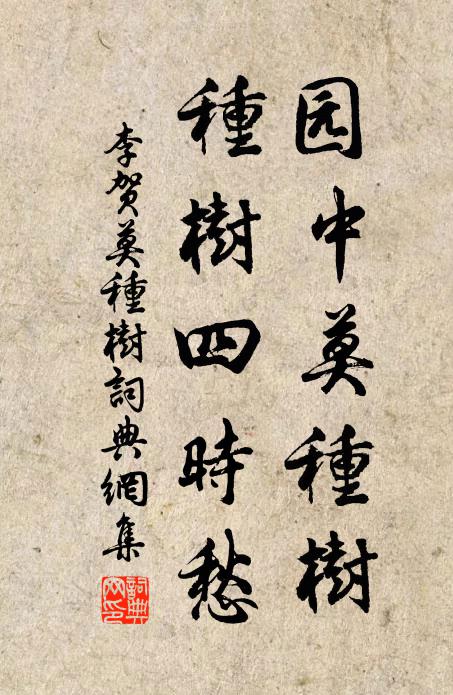 园中莫種樹
種樹四時愁
李贺莫種樹詞典網集
詞典網印